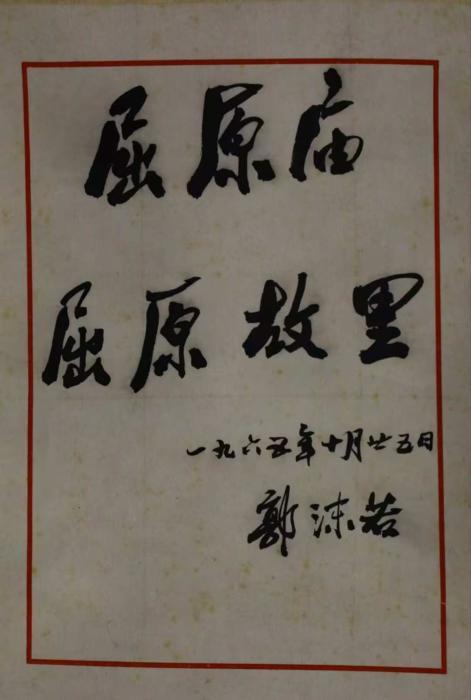 屈原庙
屈原故里
一九六五年十月廿五日
郭沫若